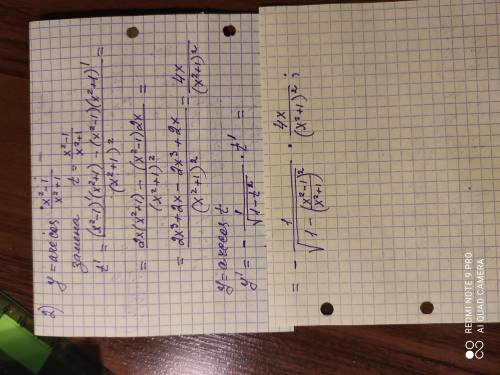 2) y = arccos (x²-1)/(x²+1) –
замена t = (x²-1)/(x²+1)
t' = ((x²-1)'(x²+1) - (x²-1)(x²+1)')/(x²+1)² =
= (2x(x²+1) - (x²-1)2x)/(x²+1)² =
= (2x³+2x-2x³+2x)/(x²+1)² = 4x/(x²+1)²
y = arccos t
y' = - 1/√(1-t²) · t' =
= - 1/√(1 - (x²-1)²/(x²+1)²) · 4x/(x²+1)² ;
REDMI NOTE 9 PRO
AI QUAD CAMERA